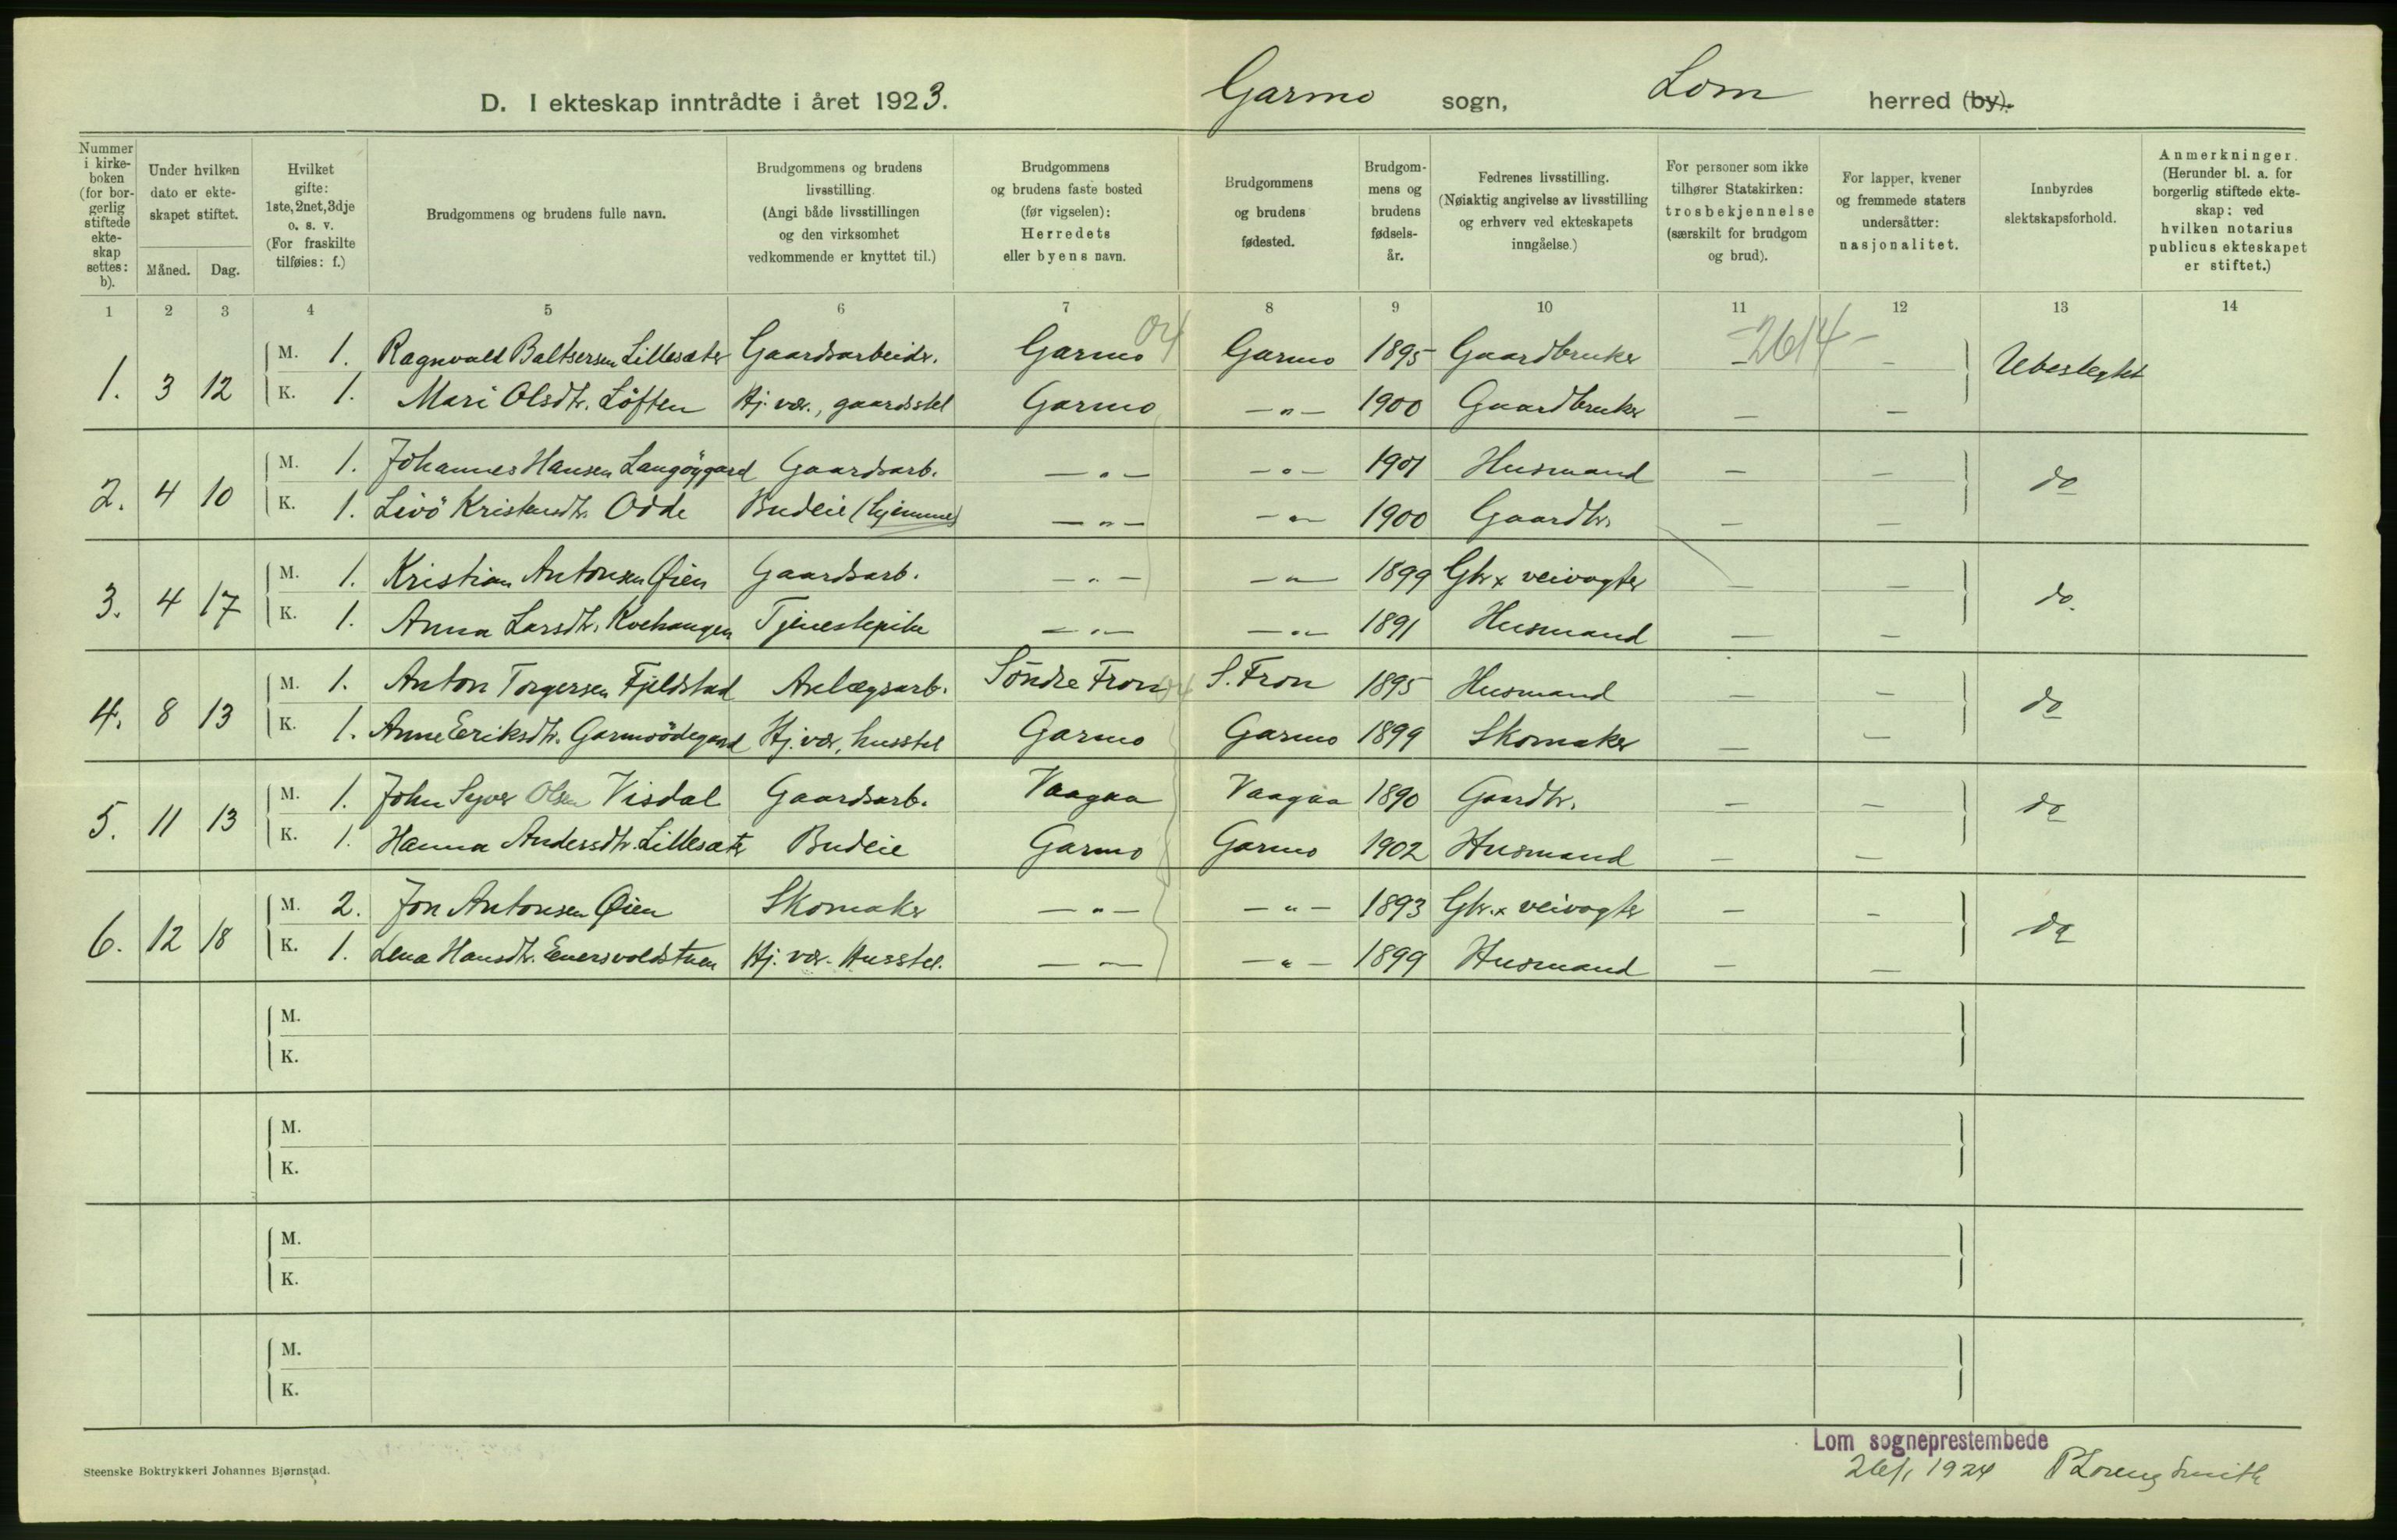 D. I ekteskap inntrådte i året 1923. Garmo sogn, Lom herred (by).
Nummer i kirkeboken (for borgerlig stiftede ekteskap settes: b).
Under hvilken dato er ekteskapet stiftet.
Måned. Dag.
Hvilket gifte: 1ste, 2net, 3dje o. s. v. (For fraskilte tilføies: f.)
Brudgommens og brudens fulle navn.
Brudgommens og brudens livsstilling. (Angi både livsstillingen og den virksomhet vedkommende er knyttet til.)
Brudgommens og brudens faste bosted (før vigselen): Herredets eller byens navn.
Brudgommens og brudens fødested.
Brudgommens og brudens fødselsår.
Fedrenes livsstilling. (Nøiaktig angivelse av livsstilling og erhverv ved ekteskapets inngåelse.)
For personer som ikke tilhører Statskirken: trosbekjennelse (særskilt for brudgom og brud).
For lapper, kvener og fremmede staters undersåtter: nasjonalitet.
Innbyrdes slektskapsforhold.
Anmerkninger. (Herunder bl. a. for borgerlig stiftede ekteskap: ved hvilken notarius publicus ekteskapet er stiftet.)
1 2 3 4 5 6 7 8 9 10 11 12 13 14
04 2614
1. 3 12 M. 1. Ragnvald Baltsersen Lillesæter Gaardsarbeidr. Garmo Garmo 1895 Gaardbruker — — Ubeslegtet
K. 1. Mari Olsdtr. Löften Hj. vær., gaardsstel Garmo —"— 1900 Gaardbruker — —
2. 4 10 M. 1. Johannes Hansen Langöygard Gaardsarb. —"— —"— 1901 Husmand — — do
K. 1. Livö Kristensdtr. Odde Budeie (hjemme) —"— —"— 1900 Gaardbr. — —
3. 4 17 M. 1. Kristian Antonsen Øien Gaardsarb. —"— —"— 1899 Gbr. x veivogter — — do.
K. 1. Anna Larsdtr. Kvehaugen Tjenestepike —"— —"— 1891 Husmand — —
4. 8 13 M. 1. Anton Torgersen Fjeldstad Anlægsarb. Söndre Fron S. Fron 1895 Husmand — — do
K. 1. Anne Eriksdtr. Garmoödegard Hj. vær, husstel Garmo Garmo 1899 Skomaker — —
5. 11 13 M. 1. John Syver Olsen Visdal Gaardsarb. Vaagaa Vaagaa 1890 Gaardbr. — — do
K. 1. Hanna Andersdtr. Lillesæter Budeie Garmo Garmo 1902 Husmand — —
6. 12 18 M. 2. Jon Antonsen Øien Skomaker —"— —"— 1893 Gbr. x veivogter — — do
K. 1. Lena Hansdtr. Enersvoldstuen Hj. vær. Husstel. —"— —"— 1899 Husmand — —
M.
K.
M.
K.
M.
K.
M.
K.
Lom sogneprestembede
Steenske Boktrykkeri Johannes Bjørnstad.
26/1 1924 P Lorenz Smith